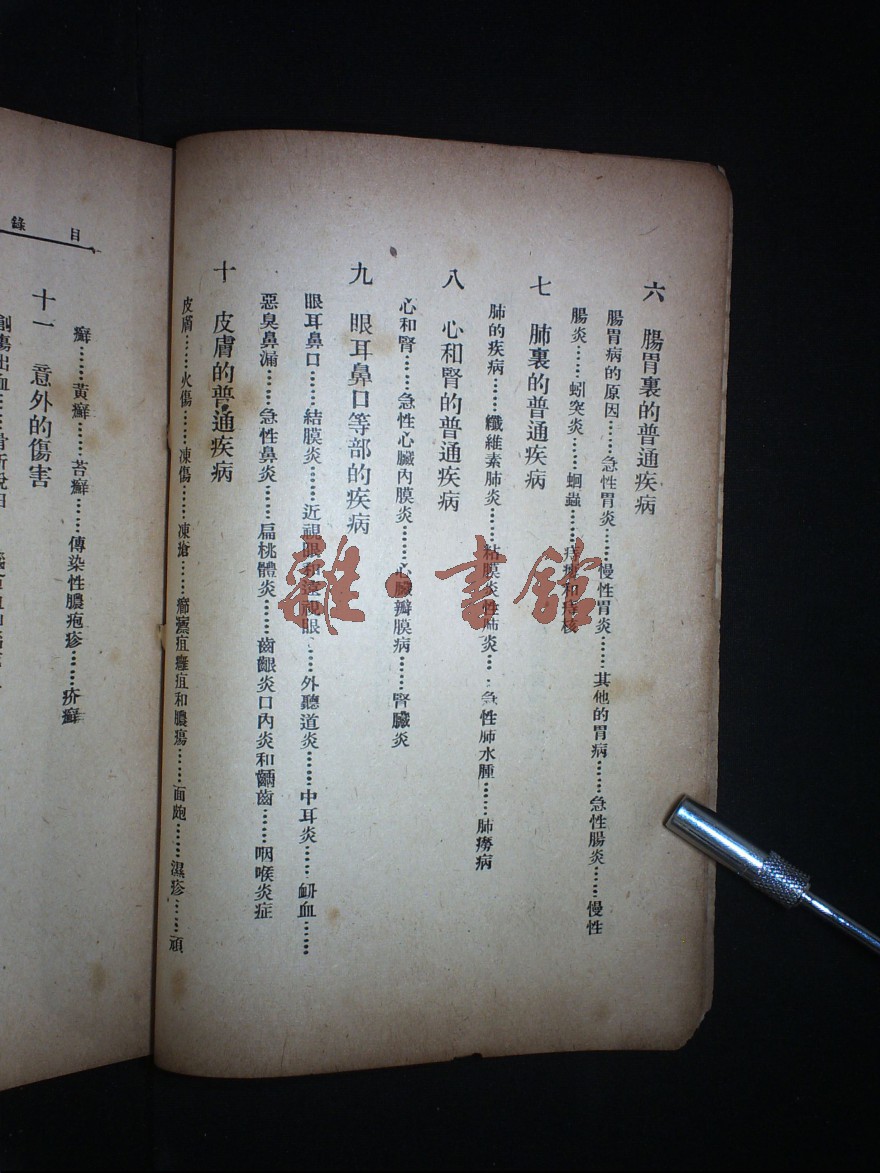 六 腸胃裏的普通疾病
腸胃病的原因……急性胃炎……慢性胃炎……其他的胃病……急性腸炎……慢性
腸炎……蚓突炎……蛔蟲……痔瘡和痔核
七 肺裏的普通疾病
肺的疾病……纖維素肺炎……粘膜炎性肺炎……急性肺水腫……肺癆病
八 心和腎的普通疾病
心和腎……急性心臟內膜炎……心臟瓣膜病……腎臟炎
九 眼耳鼻口等部的疾病
眼耳鼻口……結膜炎……近視眼和遠視眼……外聽道炎……中耳炎……衄血……
惡臭鼻漏……急性鼻炎……扁桃體炎……齒齦炎口內炎和齲齒……咽喉炎症
十 皮膚的普通疾病
皮膚……火傷……凍傷……凍瘡……癤癰疽和膿瘍……面皰……濕疹……頑
目錄
癬……黃癬……苔癬……傳染性膿疱疹……疥癬
十一 意外的傷害
創傷出血……骨折脫臼
雜·書館